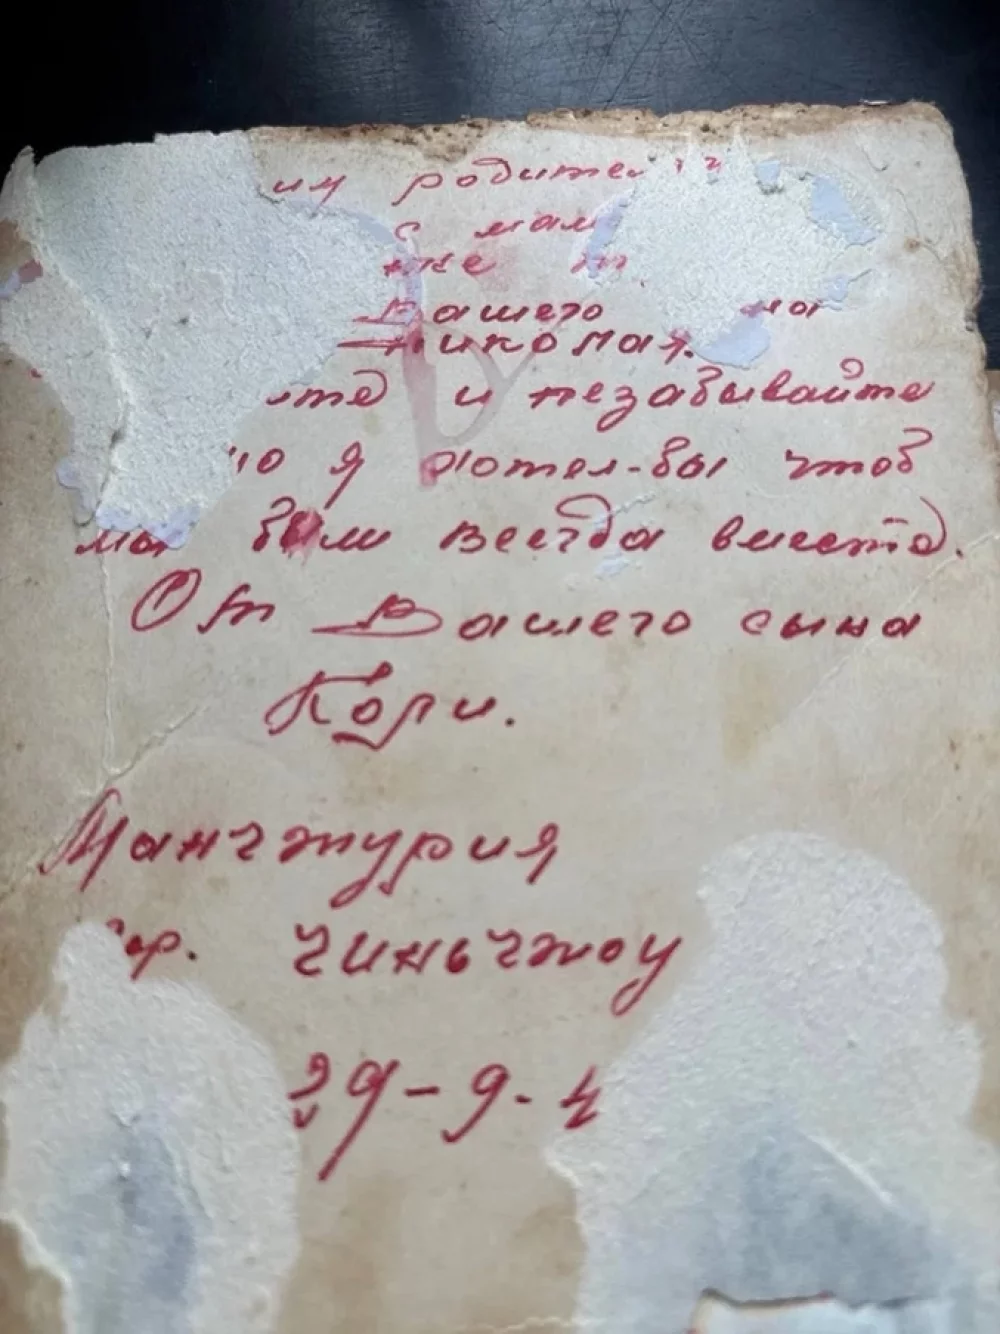 им родител
с мам
же
Вашего на
Николая.
и незабывайте
я хотел-бы чтоб
мы были всегда вместе.
От Вашего сына
Коли.
Манчжурия
гор. Чиньчжоу
29-9-4